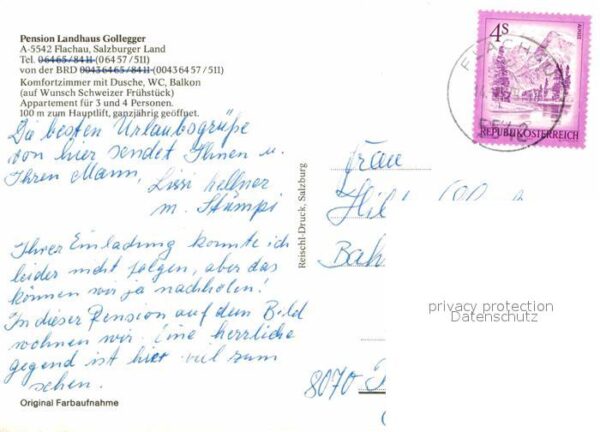 Pension Landhaus Gollegger
A-5542 Flachau, Salzburger Land
Tel. 06465/8411 (06457/511)
von der BRD 00436465/8411 (00436457/511)
Komfortzimmer mit Dusche, WC, Balkon
(auf Wunsch Schweizer Frühstück)
Appartement für 3 und 4 Personen.
100 m zum Hauptlift, ganzjährig geöffnet.
Die besten Urlaubsgrüße
von hier sendet Ihnen u.
Ihren Mann, Lissi Kellner
m. Stumpi
Ihrer Einladung konnte ich
leider nicht folgen, aber das
können wir ja nachholen!
In dieser Pension auf dem Bild
wohnen wir. Eine herrliche
gegend ist hier viel zum
sehen.
Original Farbaufnahme
Reischl-Druck, Salzburg
4S
REPUBLIK ÖSTERREICH
FLACHAU
5542
Frau
8070
privacy protection
Datenschutz